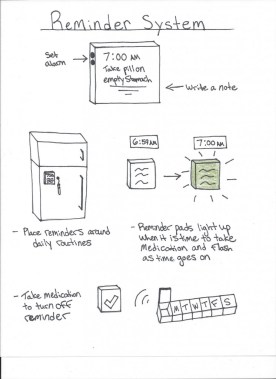 Reminder System
Set
alarm
7:00 AM
Take pill on
empty Stomach
Write a note
6:59 AM
7:00 AM
- Place reminders around
daily routines
- Reminder pads light up
when it is time to take
Medication and flash
as time goes on
- Take medication
to turn off
reminder
M T W T F S